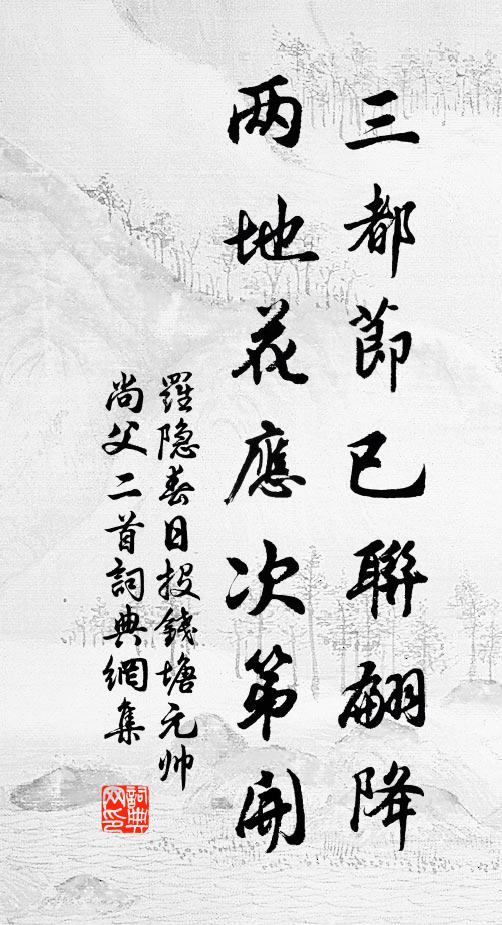 三都節已聯翩降
两地花應次第開
羅隐春日投錢塘元帅
尚父二首詞典網集